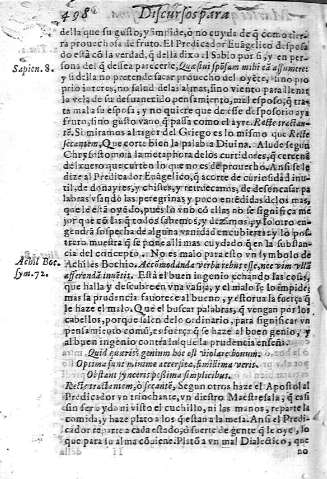 498 Discursos para
della que su gusto, y impide, ò no cuyda de q̃ como tier
ra prouechosa de fruto. El Predicador Euãgelico desposa
do está cõ la verdad, q̃ della dixo el Sabio por si, y en per-
sona del q̃ dessea parecerle, Quæsiui sponsam mihi eã assumere:
Sapien. 8.
y si della no pretende sacar prouecho del oyẽte, sino pro
prio interes, no salud de las almas, sino viento para llenar
la vela de su desuanecido pensamiento, mal esposo, q̃ tra
ta mal a su esposa, y no quiere que de ella se possea
fruto, sino gusto vano, q̃ passa como el ayre. Recte tractan-
tẽ. Si miramos al rigor del Griego es lo mismo que Recte
secantem, Que corte bien la palabra Diuina. Alude segun
Chrysostomo a la metaphora de los curtidores, q̃ cercenã
del cuero que curten lo que no es de prouecho. Ansi se le
dize al Predicador Euãgelico, q̃ acorte de curiosidad inu-
til, de donayres, y chistes, y retruecanos, de desencasar pa
labras vsando las peregrinas, y poco entendidas de los mas,
que le està oyẽdo, pues lo vno cõ ellas no se significa me
jor que cõ las q̃ todos sabemos, y dezimos, y lo otro en-
gendra sospecha de alguna vanidad encubierta: y lo pos-
trero muestra q̃ se pone alli mas cuydado q̃ en la substan-
cia del concepto. No es malo para esto vn symbolo de
Achiles Bochio. Accomodanda verba rebus esse, nec vim vllã
Achil. Boc.
afferendã inuitis. Està el buen ingenio echando las cosas,
sym. 72.
que halla y descubre en vna vasija, y el malo se lo impide;
mas la prudencia fauorece al bueno, y estorua la fuerça q̃
le haze el malo. Que el buscar palabras, q̃ vengan por los
cabellos, porque salen de lo ordinario, para significar vn
pensamiento comũ, es fuerça q̃ se haze al buen genio, y
al buen ingenio contra lo que la prudencia enseña.
Quid quæris? genium hoc est violare bonum.
Optima sunt minime accersita, simillima veris.
Obstant synceris pessima simplicibus.
Recte tractantem, ò secantẽ, Segun otros haze el Apostol al
Predicador vn trinchante, vn diestro Maestresala, q̃ casi
sin ser oydo ni visto el cuchillo, ni las manos, reparte la
comida, y haze plato a los q̃ estan a la mesa. Ansi el Pre-
dicador reparte a cada estado, ò suerte de gente q̃ le oye, lo
que para su alma cõuiene. Platõ a vn mal Dialectico, que
no